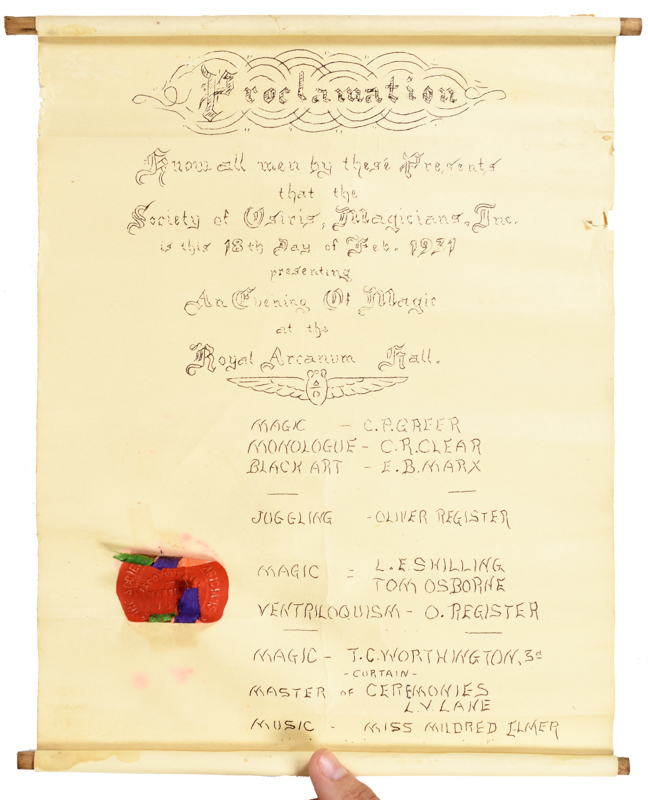 Proclamation
Know all men by these Presents
that the
Society of Osiris, Magicians, Inc.
is this 18th Day of Feb. 1931
presenting
An Evening Of Magic
at the
Royal Arcanum Hall.
MAGIC - C.P. GREER
MONOLOGUE - C.R. CLEAR
BLACK ART - E.B. MARX
JUGGLING - OLIVER REGISTER
MAGIC = L.E. SHILLING
TOM OSBORNE
VENTRILOQUISM - O. REGISTER
MAGIC - T.C. WORTHINGTON, 3d
- CURTAIN -
MASTER OF CEREMONIES
L.V. LANE
MUSIC - MISS MILDRED ELMER